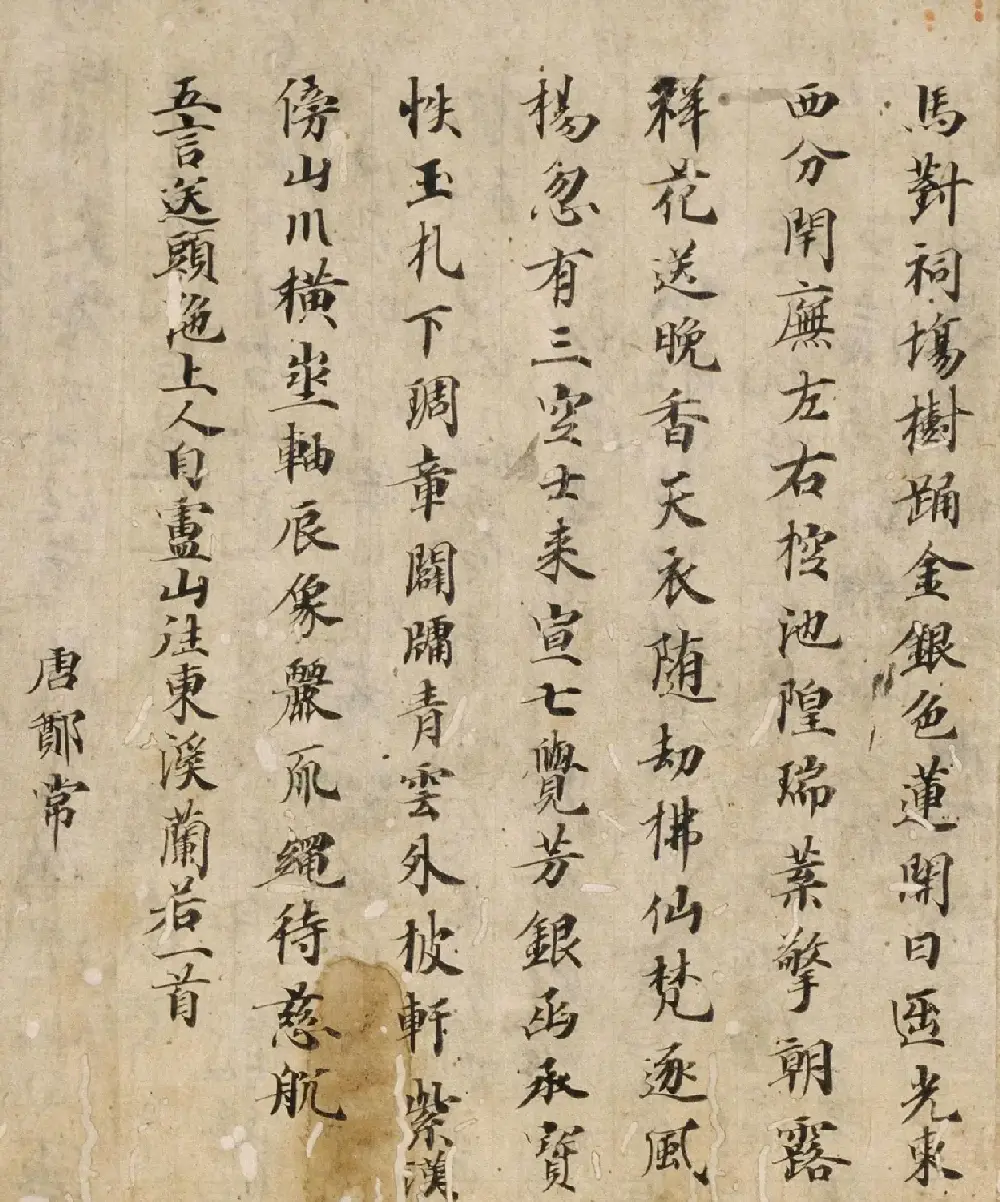 馬對祠塲樹踊金銀色蓮開日匝光東
西分閈廡左右控池隍瑞葉擎朝露
祥花送晚香天衣随劫拂仙梵逐風
楊忽有三空士来宣七覺芳銀函承寶
帙玉札下琱章闢牖青雲外披軒紫漢
傍山川横坐軸辰象麗繩待慈航
五言送頭陁上人自廬山往東溪蘭若一首
唐鄭常